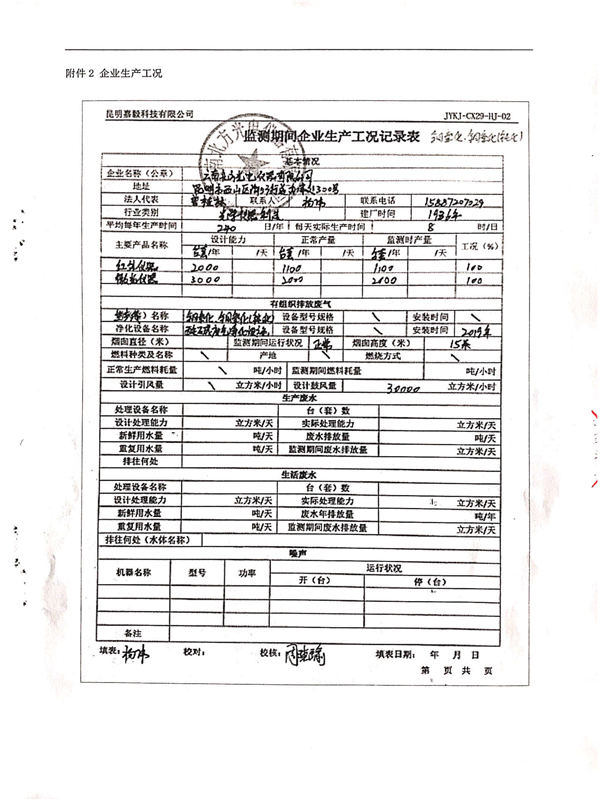 附件2 企业生产工况
昆明嘉毅科技有限公司 JYKJ-CX29-HJ-02
监测期间企业生产工况记录表
基本情况
企业名称（公章）
地址
法人代表 联系人 杨伟 联系电话 15887207029
行业类别 光学仪器制造 建厂时间 1936年
平均每年生产时间 240 日/年 每天实际生产时间 8 时/日
主要产品名称 设计能力 正常产量 监测时产量 工况（%）
台套/年 /天 台套/年 /天 台套/年 /天
红外仪器 2000 1100 1100 100
3000 2000 2000 100
有组织排放废气
名称 设备型号规格 \ 安装时间 \
净化设备名称 设备型号规格 \ 安装时间 2019年
烟囱直径（米） 监测期间运行状况 正常 烟囱高度（米） 15米
燃料种类及名称 \ 产地 \ 燃烧方式 \
正常生产燃料耗量 \ 吨/小时 监测期间燃料耗量 \ 吨/小时
设计引风量 \ 立方米/小时 设计鼓风量 30000 立方米/小时
生产废水
处理设备名称 台（套）数
设计处理能力 立方米/天 实际处理能力 立方米/天
新鲜用水量 吨/天 废水排放量 吨/天
重复用水量 吨/天 监测期间废水排放量 立方米/天
排往何处
生活废水
处理设备名称 台（套）数
设计处理能力 立方米/天 实际处理能力 立方米/天
新鲜用水量 吨/天 废水年排放量 吨/年
重复用水量 吨/天 监测期间废水排放量 立方米/天
排往何处（水体名称）
噪声
机器名称 型号 功率 运行状况
开（台） 停（台）
备注
填表：杨伟 校对： 校核： 填表日期： 年 月 日
第 页 共 页